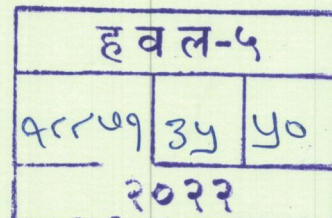 ह व ल-५
१८८७१ ३५ ५०
२०२२